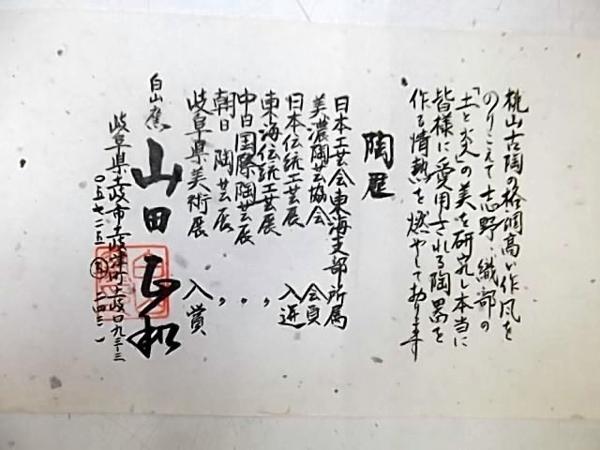 桃山古陶の格調高い作風を
のりこえて志野、織部の
「土と炎」の美を研究し本当に
皆様に愛用される陶器を
作る情熱を燃やしております
陶歴
日本工芸会東海支部所属
美濃陶芸協会 会員
日本伝統工芸展 入選
東海伝統工芸展 〃
中日国際陶芸展 〃
朝日陶芸展 〃
岐阜県美術展 入賞
白山窯 山田 和
岐阜県土岐市土岐津町土岐口九三三